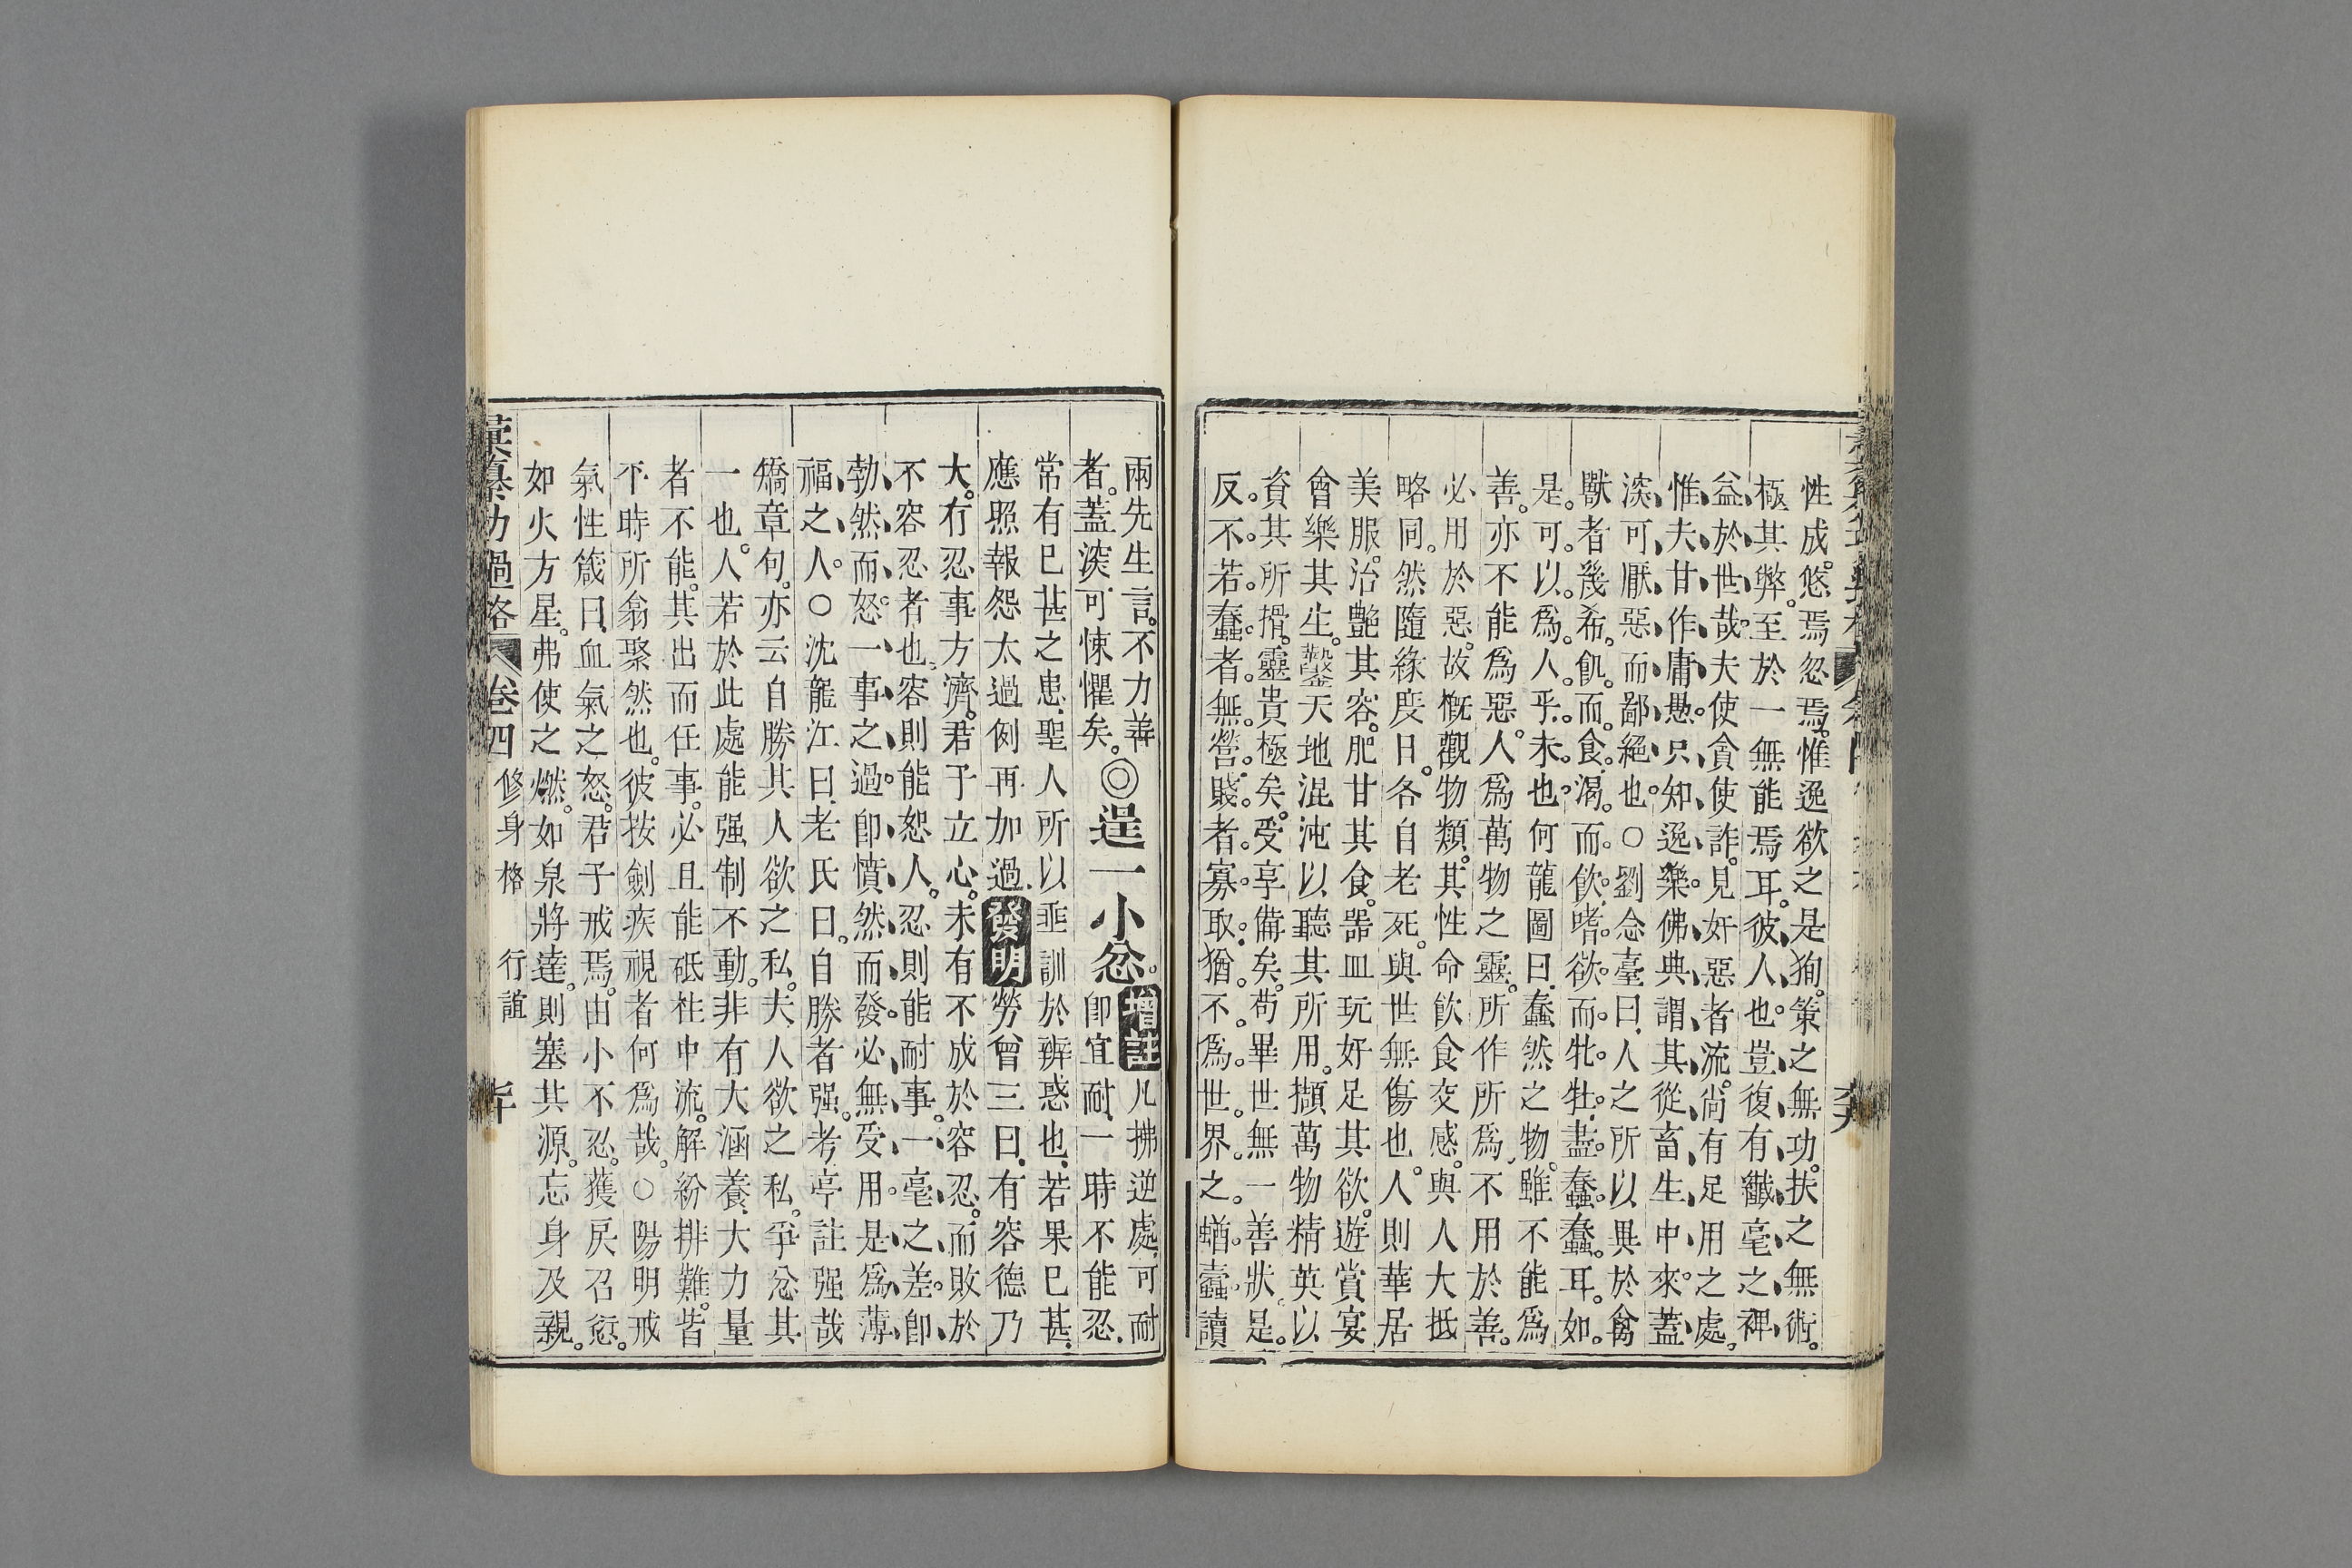 性成。悠焉忽焉。惟逸欲之是狥。策之無功。扶之無術。
極其弊。至於一無能焉耳。彼人也。豈復有纎毫之裨
益於世哉。夫使貪使詐。見奸惡者流。尚有足用之處。
惟夫甘作庸愚。只知逸樂。佛典謂其從畜生中來。蓋
深可厭惡而鄙絕也。○劉念臺曰。人之所以異於禽
獸者幾希。飢。而。食。渴。而。飲。嗜。欲。而。牝。牡。盡。蠢。蠢。耳。如。
是。可。以。爲。人。乎。未。也。何龍圖曰。蠢然之物。雖不能爲
善。亦不能爲惡。人爲萬物之靈。所作所爲。不用於善。
必用於惡。故慨觀物類。其性命飲食交感。與人大抵
略同。然隨緣度日。各自老死。與世無傷也。人則華居
美服。冶艷其容。肥甘其食。器皿玩好足其欲。遊賞宴
會樂其生。鑿天地混沌以聽其所用。擷萬物精英以
資其所揟。靈貴極矣。受享備矣。茍畢世無一善狀。是。
反。不。若。蠢。者。無。營。賤。者。寡。取。猶。不。爲。世。界。之。蝤。蠧。讀
兩先生言。不力善
者。蓋深可悚懼矣。◎逞一小忿。增註凡拂逆處。可耐
卽宜耐。一時不能忍。
常有已甚之患。聖人所以垂訓於辨惑也。若果已甚。
應照報怨太過例再加過。發明勞曾三曰。有容德乃
大。有忍事方濟。君子立心。未有不成於容忍。而敗於
不容忍者也。容則能恕人。忍則能耐事。一毫之差。卽
勃然而怒。一事之過。卽憤然而發。必無受用。是爲薄
福之人。○沈龍江曰。老氏曰。自勝者强。考亭註强哉
矯章句。亦云自勝其人欲之私。夫人欲之私。爭忿其
一也。人若於此處能强制不動。非有大涵養。大力量
者不能。其出而任事。必且能砥柱中流。解紛排難。皆
平時所翁聚然也。彼按劍疾視者何爲哉。○陽明戒
氣性箴曰。血氣之怒。君子戒焉。由小不忍。獲戾召愆。
如火方星。弗使之燃。如泉將達。則塞其源。忘身及親。
彙纂功過格 卷四 修身格 行誼